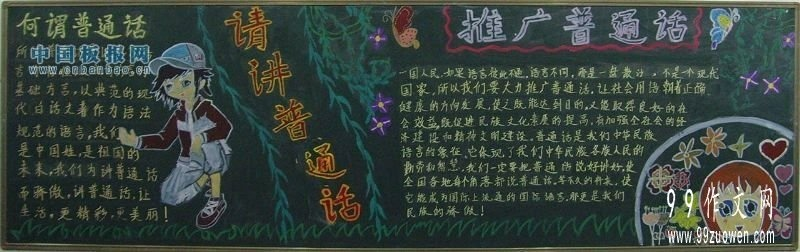 何谓普通话
中国板报网
www.cnbanbao.cn
基础方言，以典范的现
代白话文著作为语法
规范的语言，我们
是中国娃，是祖国的
未来，我们为讲普通话
而骄傲，讲普通话，让
生活，更精彩，更美丽！
请讲普通话
推广普通话
一国人民，如果语言
国家，所以我们要大力推广普通话，让社会用语朝着正确
健康的方向发展，使之既能达到目的，又能取得良好的社
会效益，既促进民族文化素质的提高，有加强全社会的经
济建设和精神文明建设。普通话是我们中华民族
语言的象征，它体现了我们中华民族各族人民的
勤劳和智慧，我们一定要把普通话说好讲好，使
全国各地每个角落都说普通话。
它能成为国际上流通的国际语言，那更是我们
民族的骄傲！
99作文网
www.99zuowen.com